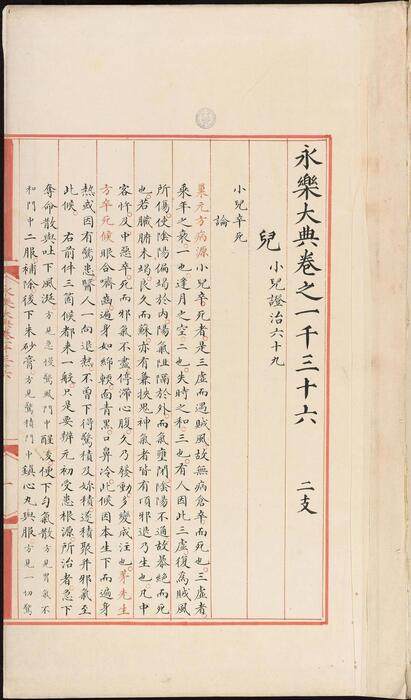 永樂大典卷之一千三十六 二支
兒 小兒證治六十九
小兒卒死
論
巢元方病源小兒卒死者是三虛而遇賊風故無病倉卒而死也三虛者
乘年之衰一也逢月之空二也失時之和三也有人因此三虛復為賊風
所傷使陰陽偏竭於內陽氣阻隔於外而氣壅閉陰陽不通故暴絕而死
也若臟腑未竭良久而蘇亦有兼挾鬼神氣者皆有頃邪退乃生也凡中
客忤及中惡卒死而邪氣不盡停滯心腹久乃發動多變成注也茅先生
方卒死候眼合齊遍身如綿輭面青黑口鼻冷此候因本生下而遍身
熱或因有驚患醫人一向退熱不曾下得驚積及妳積遂積聚并邪氣至
此候右前件三箇候都來一般只是要辨元初受患根源所治者急下
奪命散與吐下風涎方見急慢驚風門中醒後便下勻氣散方見胃氣不
和門中二服補除後下朱砂膏方見驚積門中鎮心丸與服方見一切驚